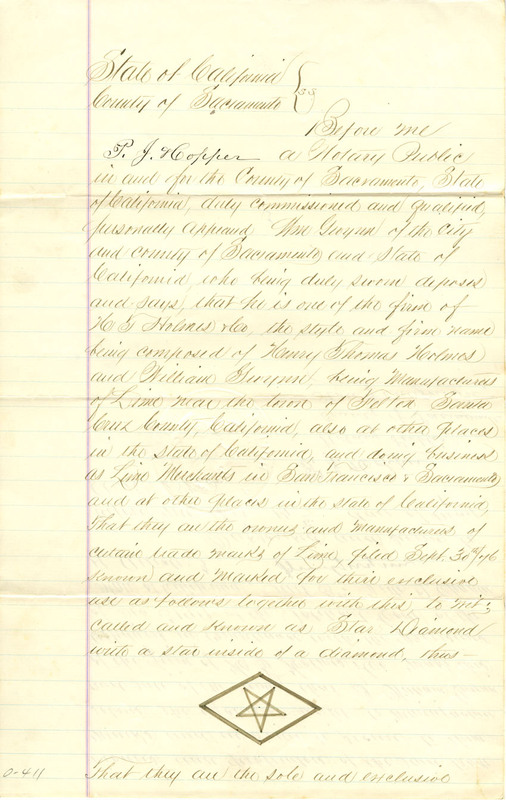 State of California
County of Sacramento } SS
Before me
P. J. Hopper a Notary Public
in and for the County of Sacramento, State
of California, duly commissioned and qualified,
personally appeared Wm Gwynn of the City
and county of Sacramento and State of
California, who being duly sworn deposes
and says, that he is one of the firm of
H T Holmes & Co, the style and firm name
being composed of Henry Thomas Holmes
and William Gwynn, being Manufacturers
of Lime near the town of Felton, Santa
Cruz County, California, also at other places
in the state of California, and doing business
as Lime Merchants in San Francisco & Sacramento
and at other places in the state of California,
That they are the owners and manufacturers of
certain trade marks of Lime, filed Sept. 30th/76
known and marked for their exclusive
use as follows together with this, to wit;
called and known as Star Diamond
with a star inside of a diamond, thus—
0-411 That they are the sole and exclusive